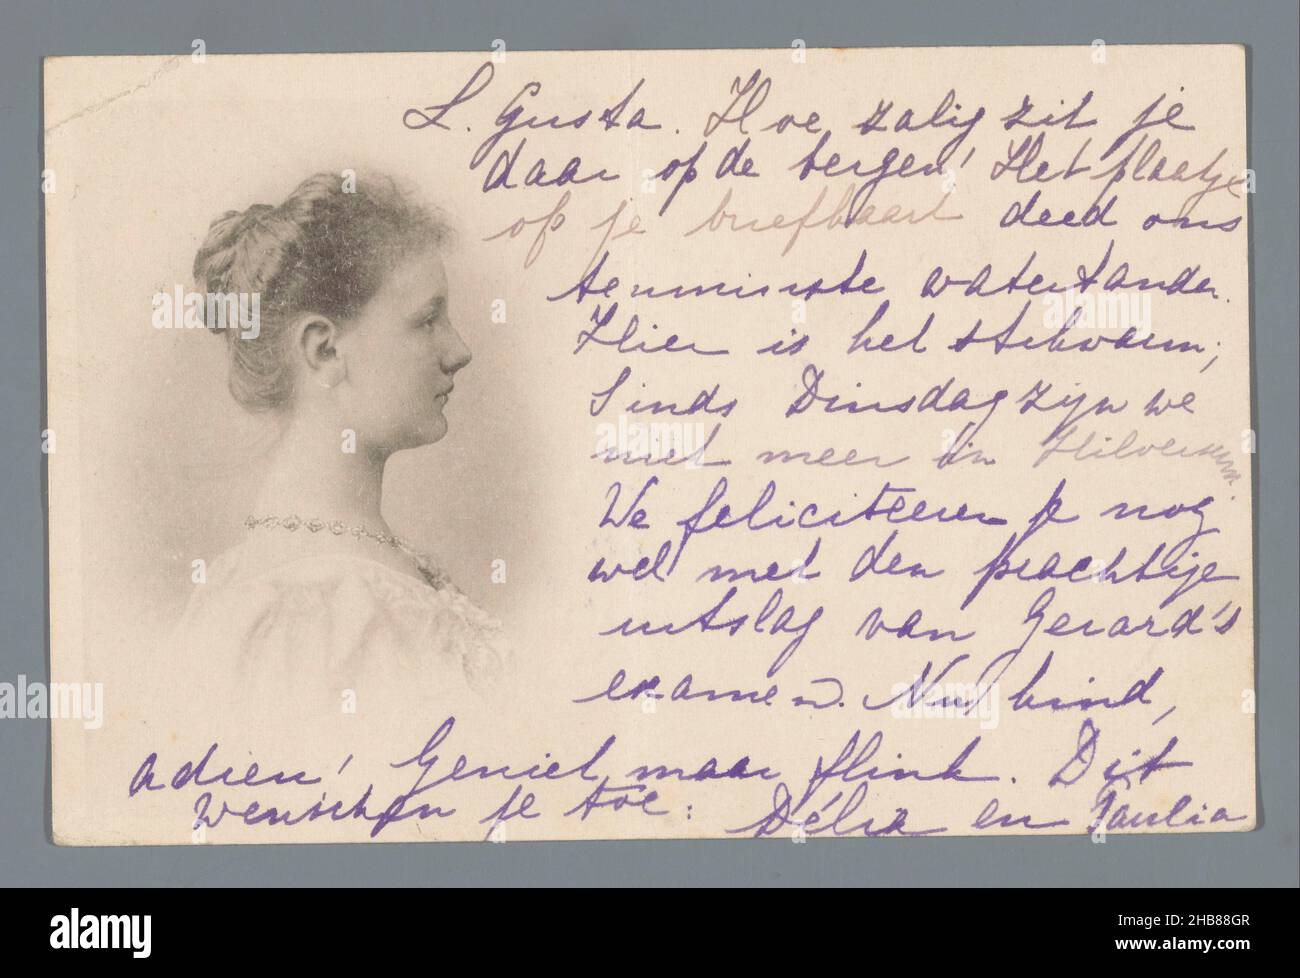 L. Gusta. Hoe zalig zit je
daar op de bergen! Het plaatje
op je briefkaart deed ons
tenminste watertanden.
Hier is het stikwarm;
Sinds Dinsdag zijn we
niet meer in Hilversum.
We feliciteeren je nog
wel met den prachtige
uitslag van Gerard's
examen. Nu kind,
adieu! Geniet maar flink. Dit
wenschen je toe: Délia en Paulia
a
alamy
Image ID: 2HB88GR
www.alamy.com